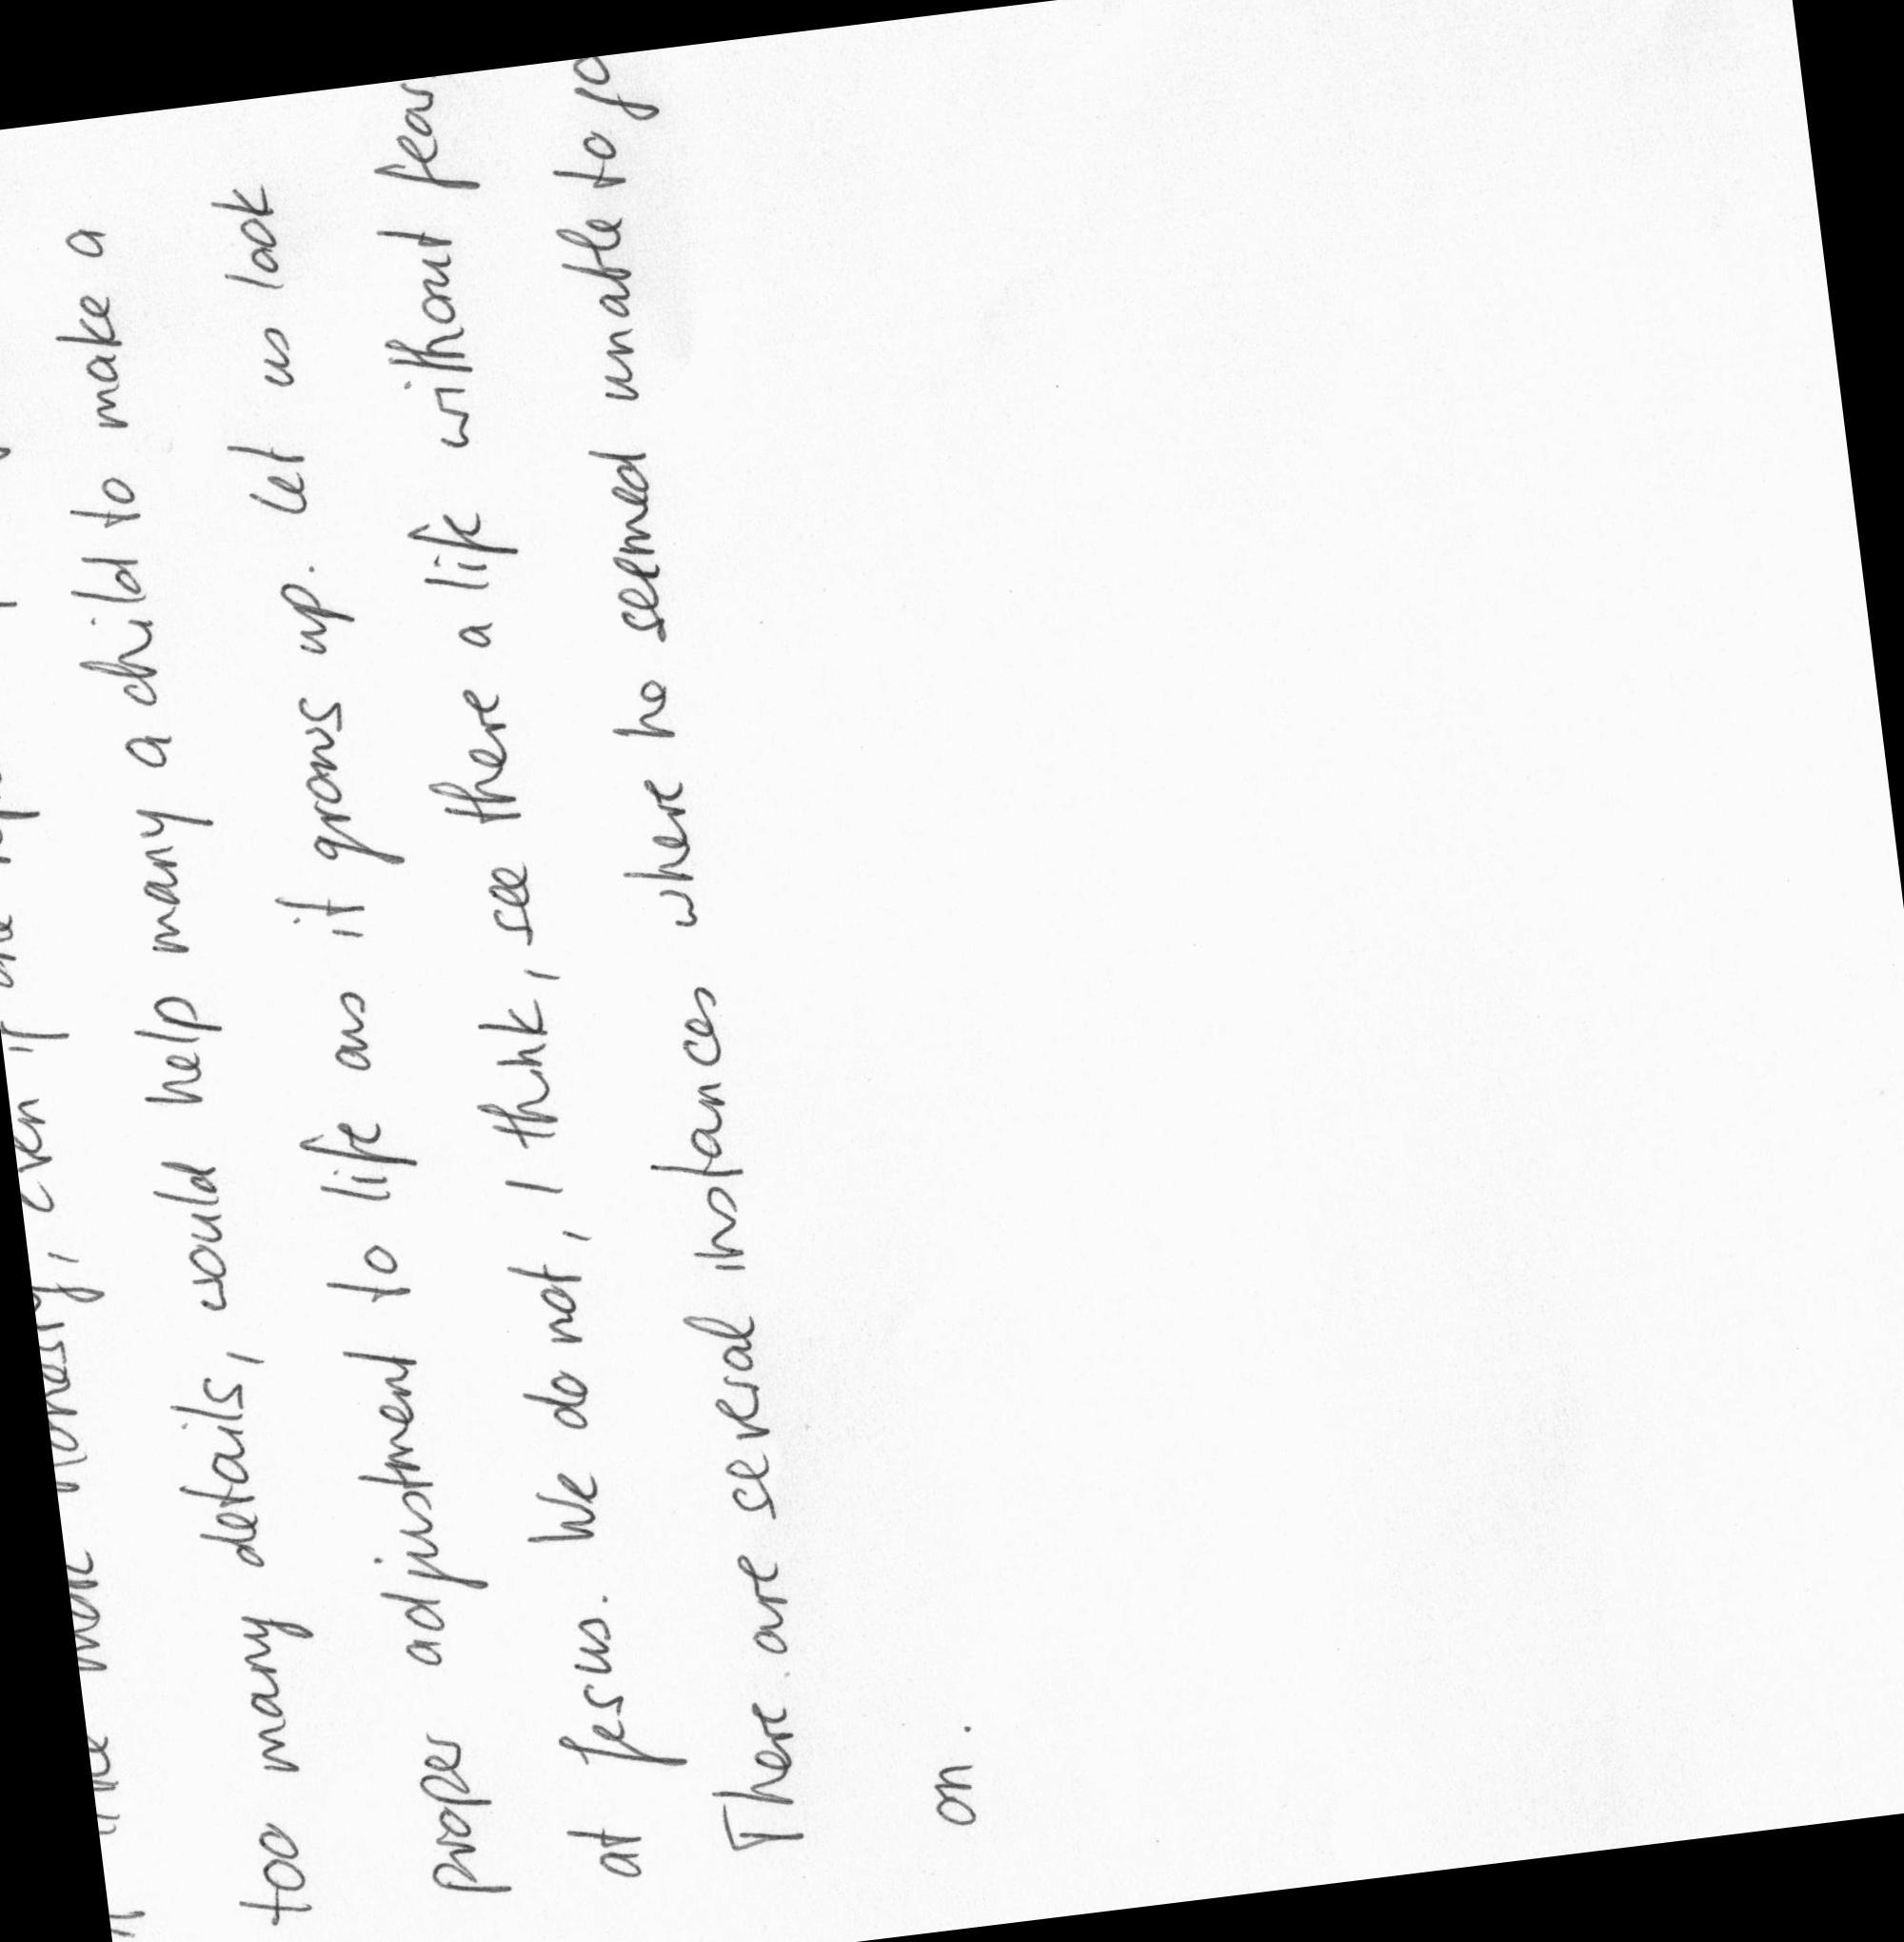 little more honesty, even if
too many details, would help many a child to make a
proper adjustment to life as it grows up. Let us look
at Jesus. We do not, I think, see there a life without fear
There are several instances where he seemed unable to go
on.